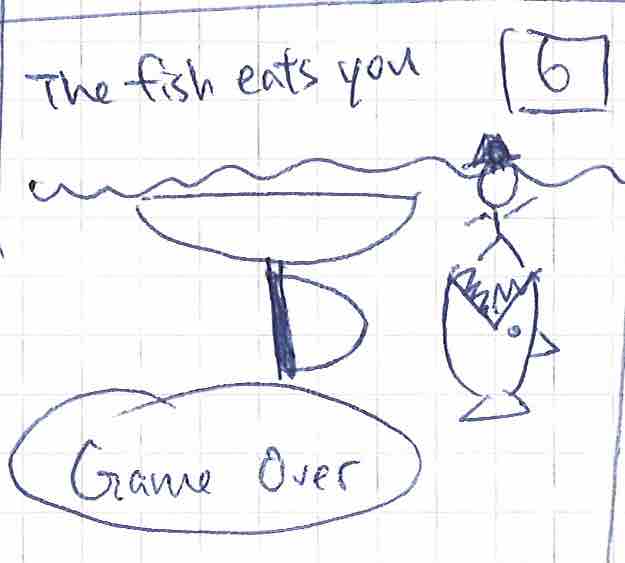 The fish eats you
6
Game Over